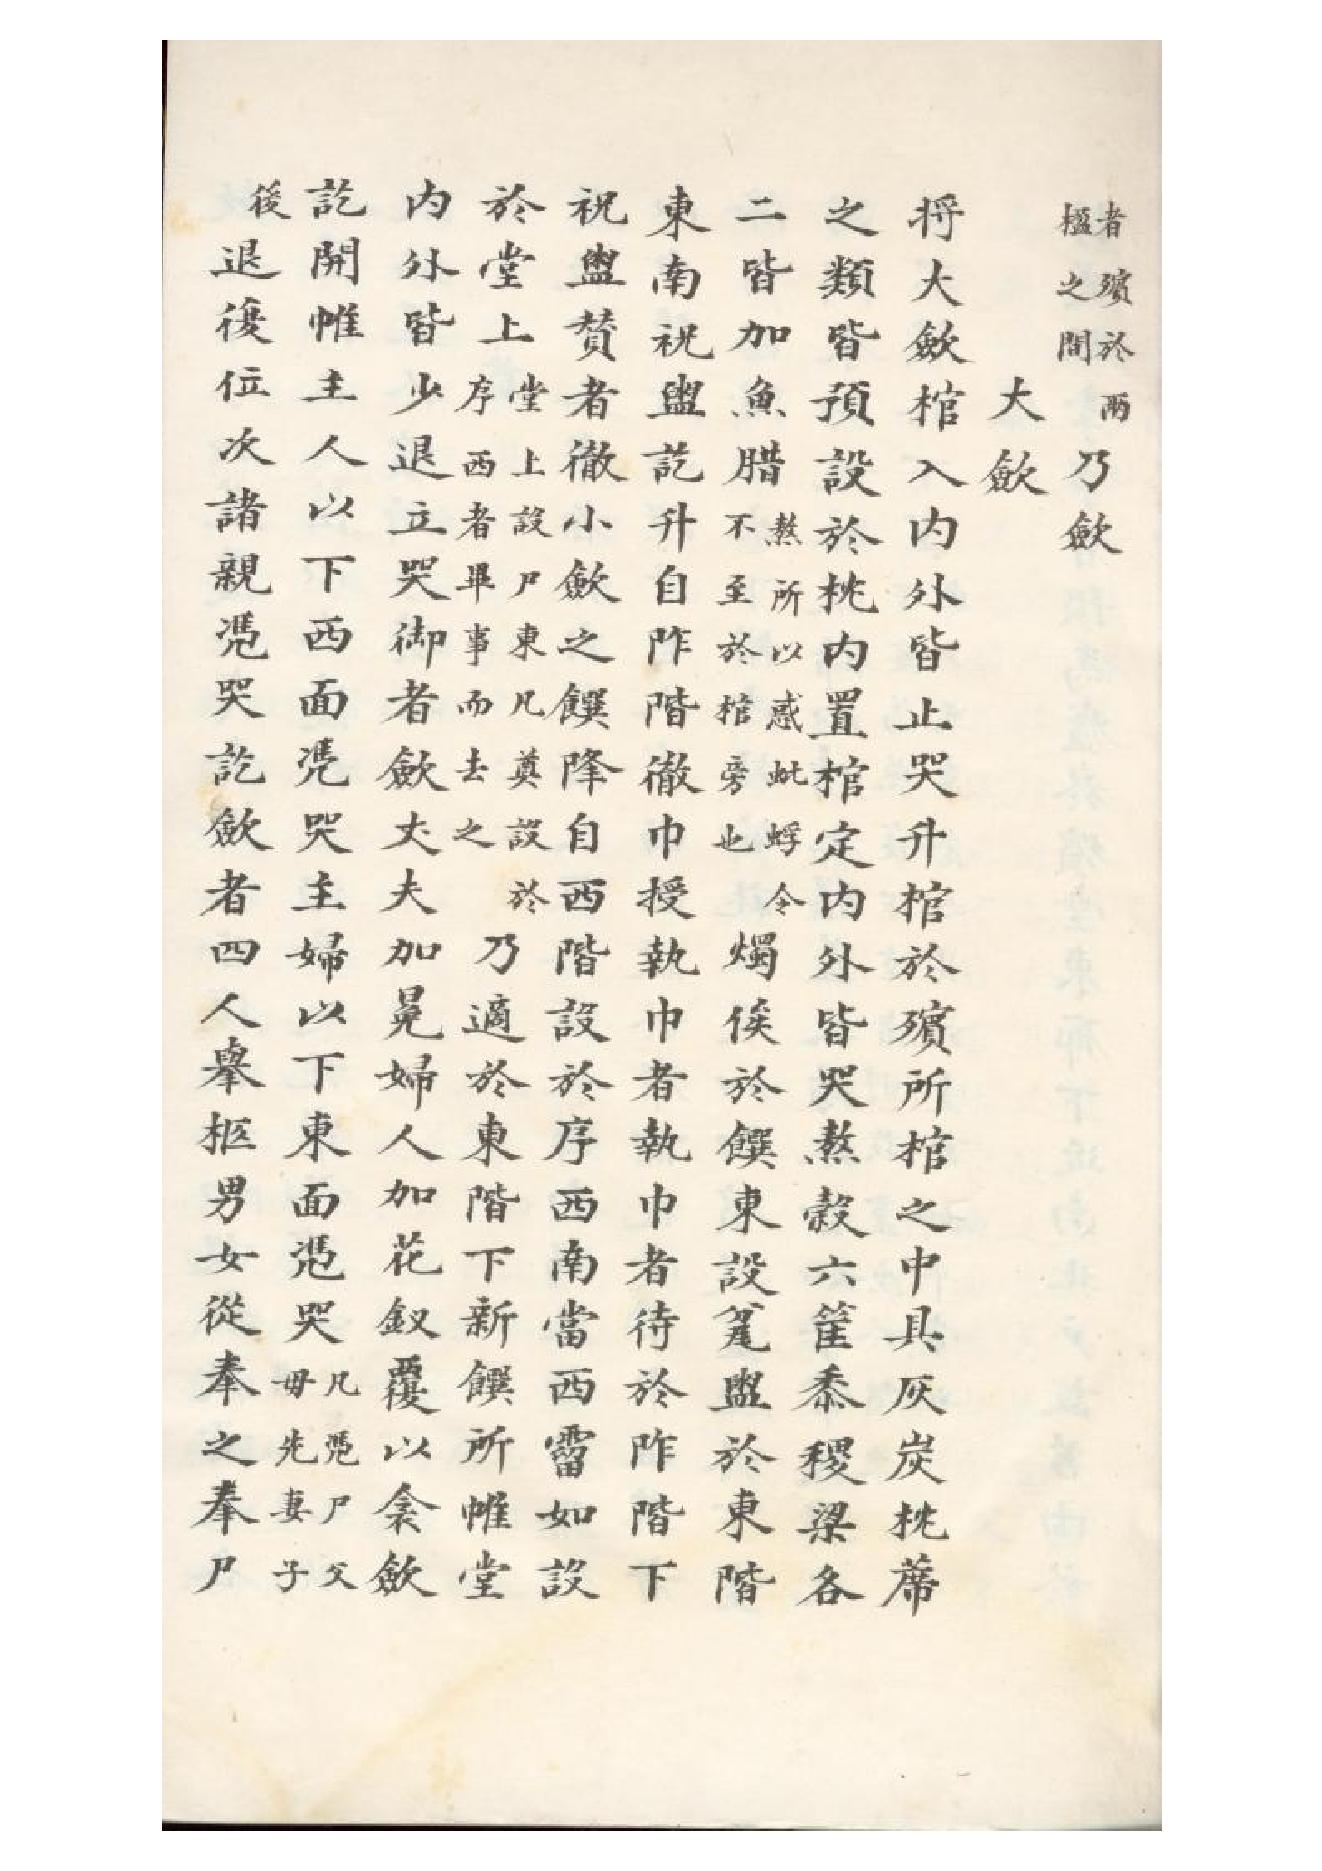 者殯於兩楹之間乃斂
大斂
將大斂棺入内外皆止哭升棺於殯所棺之中具灰炭枕蓆
之類皆預設於枕内置棺定内外皆哭熬榖六筐黍稷梁各
二皆加魚腊熬所以惑蚍蜉令不至於棺旁也燭俟於饌東設篚盥於東階
東南祝盥訖升自阼階徹巾授執巾者執巾者待於阼階下
祝盥贊者徹小斂之饌降自西階設於序西南當西霤如設
於堂上堂上設尸東凡奠設於序西者畢事而去之乃適於東階下新饌所帷堂
内外皆少退立哭御者斂丈夫加冕婦人加花釵覆以衾斂
訖開帷主人以下西面凴哭主婦以下東面凴哭凡凴尸父母先妻子
後退復位次諸親凴哭訖斂者四人舉柩男女從奉之奉尸